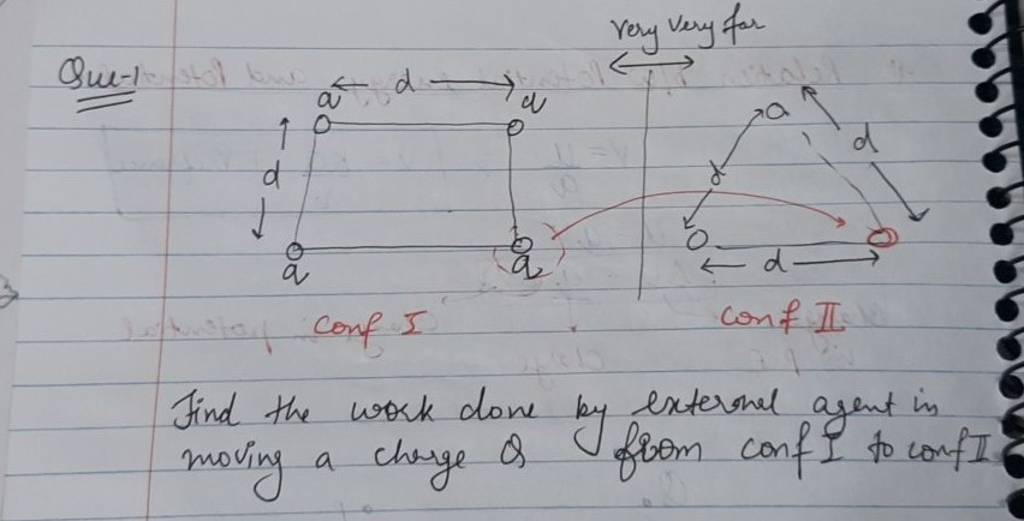 very very far
Que-1
d
q
q
d
q
d
d
q
q
d
conf I
conf II
Find the work done by external agent in
moving a charge Q from conf I to conf II